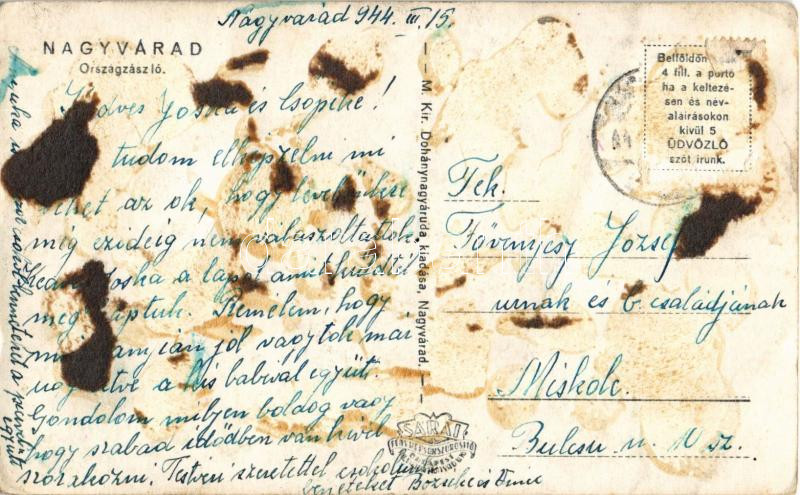 Nagyvárad 944. III. 15.
NAGYVÁRAD
Országzászló.
Kedves Joska és Csopike!
tudom elképzelni mi
lehet az ok, hogy levelünkre
még ezideig nem válaszoltatok.
Joska a lapot amit küldtél
meg Remélem, hogy
jól vagytok már
a kis babával együtt.
Gondolom milyen boldog vagy
hogy szabad idődben van kivel
szórakozni. Testvéri szeretettel csókolunk
benneteket Bözsike és
együtt
M. Kir. Dohánynagyáruda kiadása, Nagyvárad.
Belföldön csak
4 fill. a portó
ha a keltezé-
sen és név-
aláírásokon
kívül 5
ÜDVÖZLŐ
szót írunk.
44
Tek.
Fövényesy József
urnak és b. családjának
Miskolc.
Bulcsu u. 10 sz.
SARAI
FÉNYKÉPSOKSZOROSÍTÓ
BUDAPEST